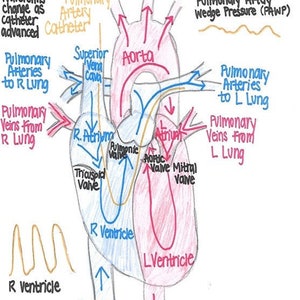 change as
catheter
advanced
Pulmonary
Artery
Catheter
Wedge Pressure (PAWP)
Superior
Vena
Cava
Aorta
Pulmonary
Arteries
to R Lung
Pulmonary
Arteries
to L Lung
Pulmonary
Veins from
R Lung
R Atrium
L
Atrium
Pulmonary
Veins from
L Lung
Pulmonic
Valve
Aortic
Valve
Mitral
Valve
Tricuspid
Valve
R Ventricle
L Ventricle
R Ventricle